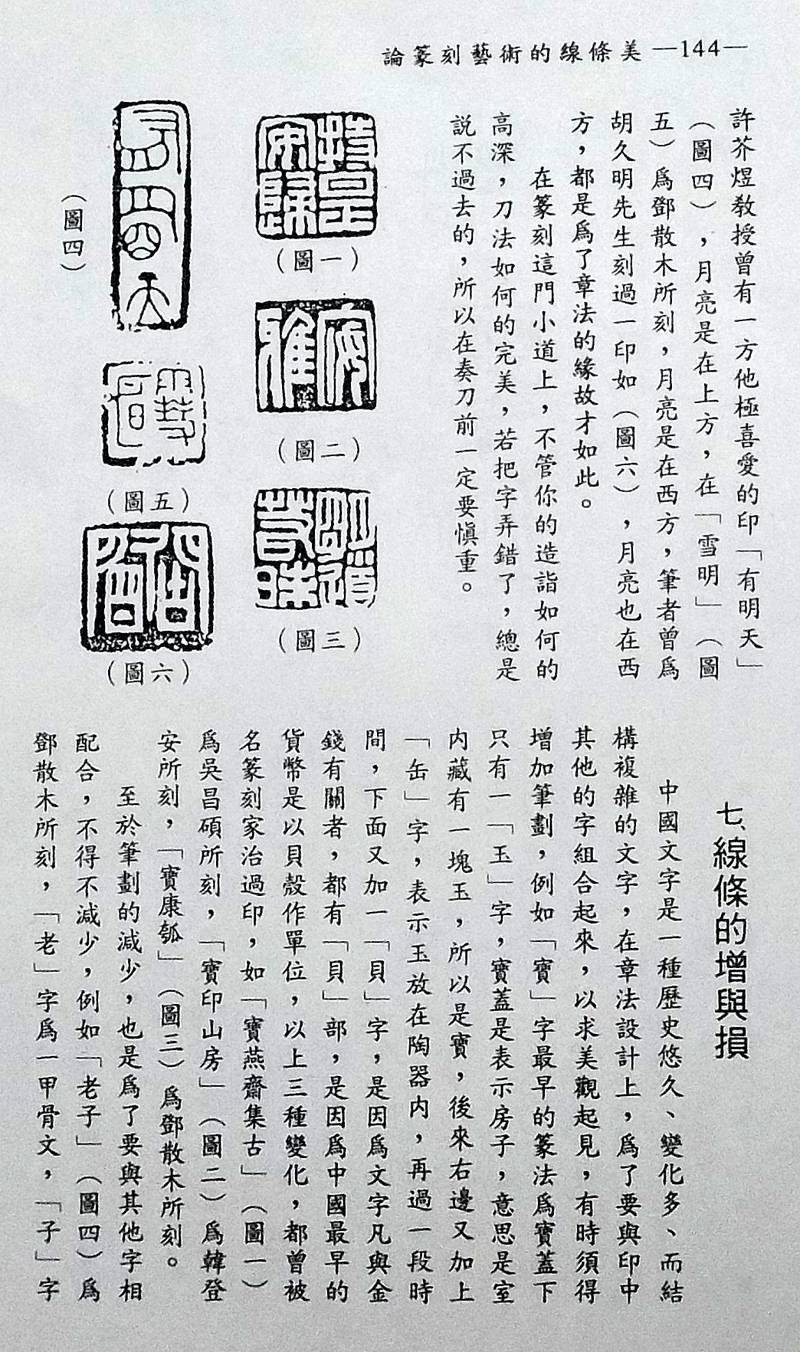 論篆刻藝術的線條美 —144—
許芥煜教授曾有一方他極喜愛的印「有明天」
（圖四），月亮是在上方，在「雪明」（圖
五）爲鄧散木所刻，月亮是在西方，筆者曾爲
胡久明先生刻過一印如（圖六），月亮也在西
方，都是爲了章法的緣故才如此。
在篆刻這門小道上，不管你的造詣如何的
高深，刀法如何的完美，若把字弄錯了，總是
説不過去的，所以在奏刀前一定要慎重。
（圖一）
（圖二）
（圖三）
（圖四）
（圖五）
（圖六）
七、線條的增與損
中國文字是一種歷史悠久、變化多、而結
構複雜的文字，在章法設計上，爲了要與印中
其他的字組合起來，以求美觀起見，有時須得
增加筆劃，例如「寶」字最早的篆法爲寶蓋下
只有一「玉」字，寶蓋是表示房子，意思是室
内藏有一塊玉，所以是寶，後來右邊又加上
「缶」字，表示玉放在陶器内，再過一段時
間，下面又加一「貝」字，是因爲文字凡與金
錢有關者，都有「貝」部，是因爲中國最早的
貨幣是以貝殼作單位，以上三種變化，都曾被
名篆刻家治過印，如「寶燕齋集古」（圖一）
爲吳昌碩所刻，「寶印山房」（圖二）爲韓登
安所刻，「寶康瓠」（圖三）爲鄧散木所刻。
至於筆劃的減少，也是爲了要與其他字相
配合，不得不減少，例如「老子」（圖四）爲
鄧散木所刻，「老」字爲一甲骨文，「子」字